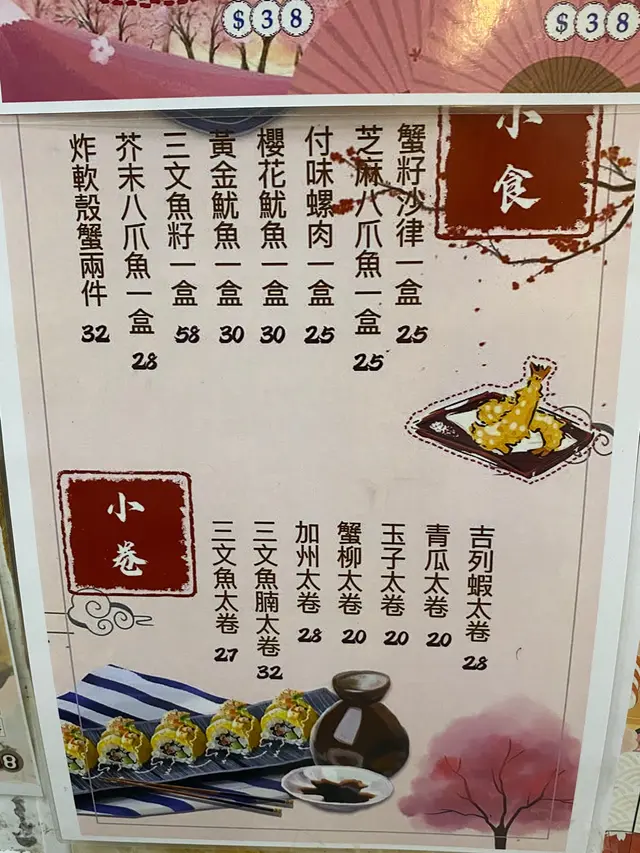 $38
$38
小食
蟹籽沙律一盒
25
芝麻八爪魚一盒
25
付味螺肉一盒
25
櫻花魷魚一盒
30
黃金魷魚一盒
30
三文魚籽一盒
58
芥末八爪魚一盒
28
炸軟殼蟹兩件
32
小卷
吉列蝦太卷
28
青瓜太卷
20
玉子太卷
20
蟹柳太卷
20
加州太卷
28
三文魚腩太卷
32
三文魚太卷
27
8